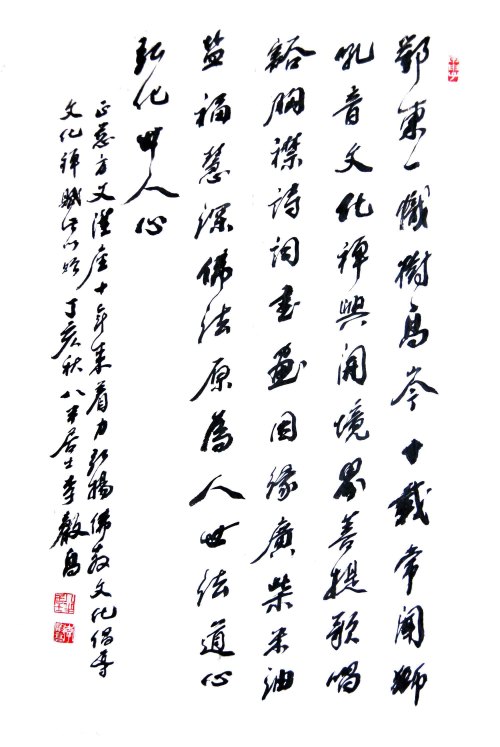 鄂東一幟樹高岑十載常聞獅
吼音文化禪興開境界菩提歌唱
豁胸襟詩詞書畫因緣廣柴米油
盐福慧深佛法原為人世法道心
弘化世人心
正慈方丈座十年來着力弘揚佛教文化倡導
文化禪賦此以 丁亥秋 居士李